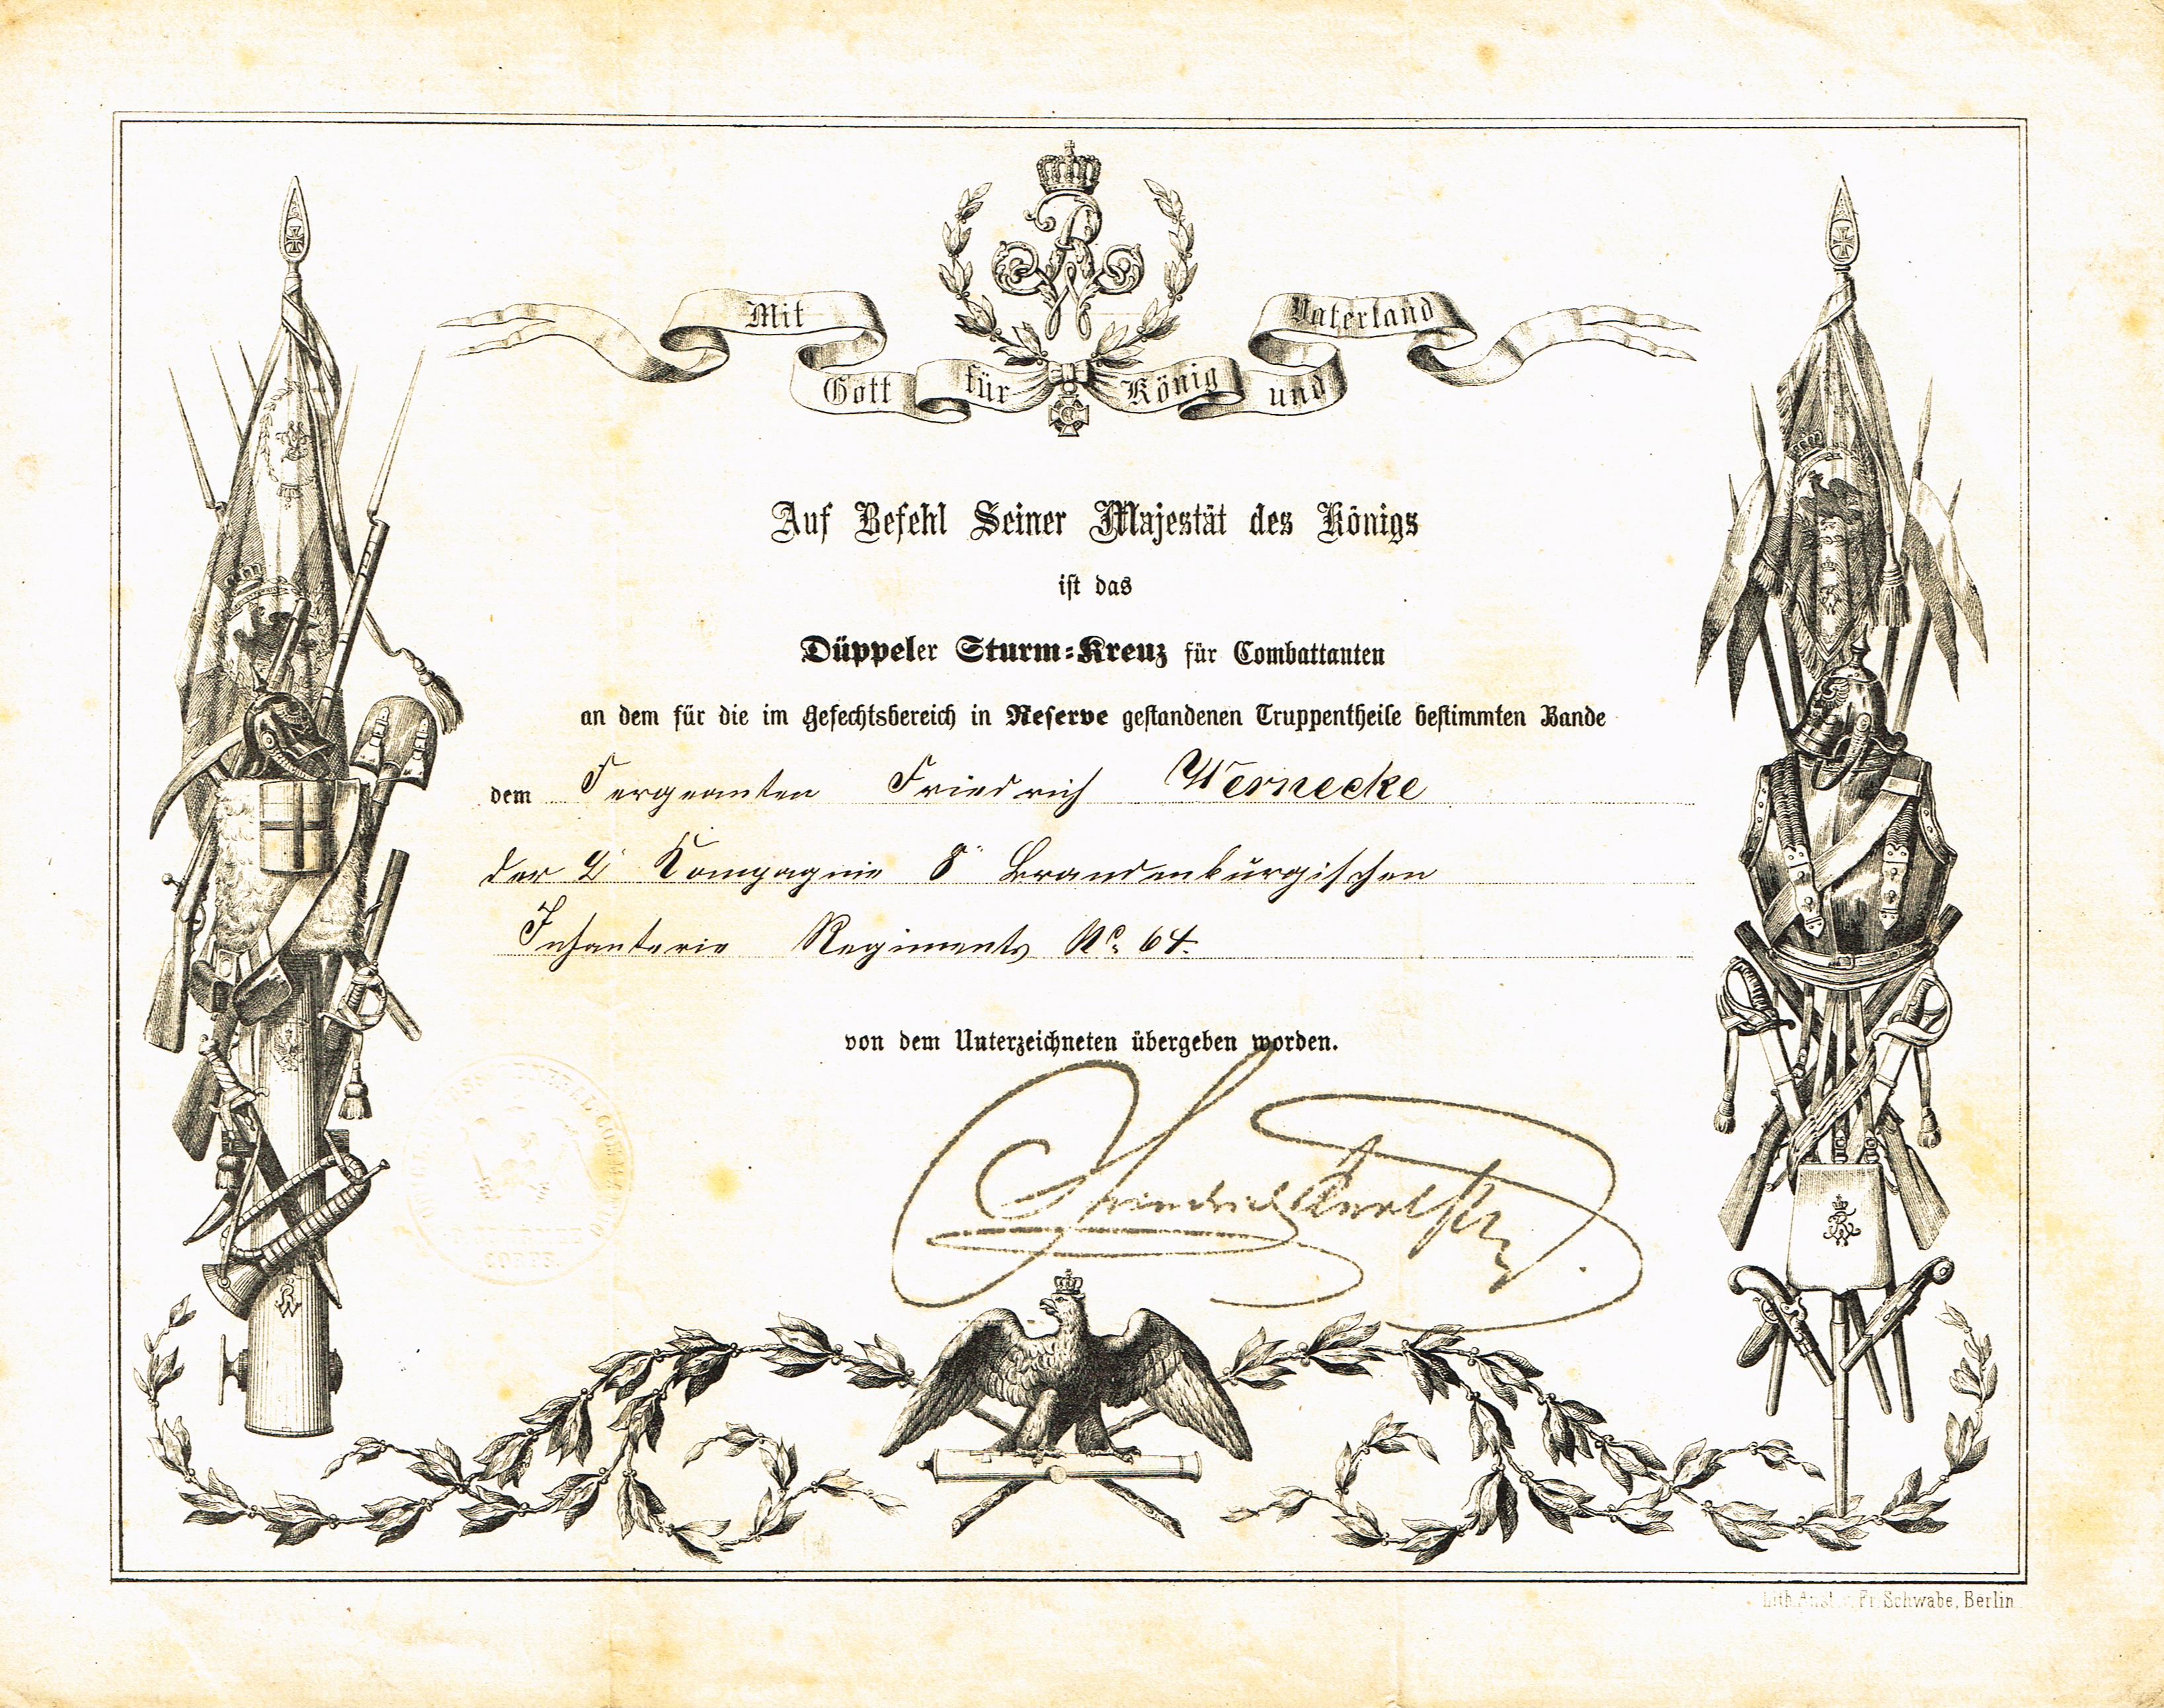 Mit Gott für König und Vaterland
Auf Befehl Seiner Majestät des Königs
ist das
Düppeler Sturm-Kreuz für Combattanten
an dem für die im Gefechtsbereich in Reserve gestandenen Truppentheile bestimmten Bande
dem Sergeanten Friedrich Wernecke
der 2ᵗ Kompagnie 8ᵗ Brandenburgischen
Infanterie Regiments No. 64.
von dem Unterzeichneten übergeben worden.
Lith. Anst. v. Fr. Schwabe, Berlin